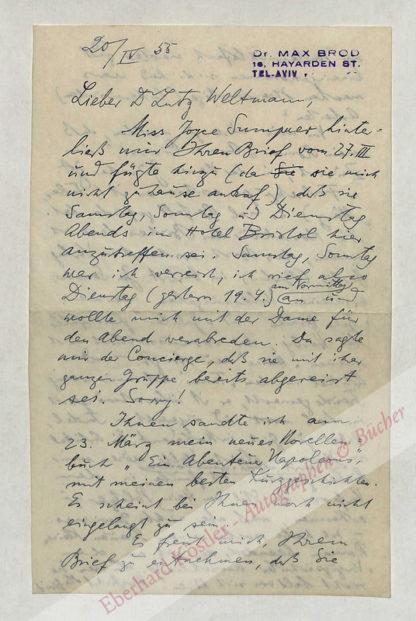 20/IV 55
Dr. MAX BROD
16, HAYARDEN ST.
TEL-AVIV
Lieber Dr Lutz Weltmann,
Miss Joyce Sumpner hinter-
ließ mir Ihren Brief vom 27.III
und fügte hinzu (da Sie sie mich
nicht zuhause antraf), daß sie
Samstag, Sonntag und Dienstag
Abends in Hotel Bristol hier
anzutreffen sei. Samstag, Sonntag
war ich verreist, ich rief also
Dienstag (gestern 19.4.) am Vormittag an und
wollte mich mit der Dame für
den Abend verabreden. Da sagte
mir der Concierge, daß sie mit ihrer
ganzen Gruppe bereits abgereist
sei. Sorry!
Ihnen sandte ich am
23. März mein neues Novellen-
buch „Ein Abenteuer Napoleons",
mit meinen besten Kurzgeschichten.
Es scheint bei Ihnen noch nicht
eingelangt zu sein.
Es freut mich, Ihrem
Brief zu entnehmen, daß Sie
Eberhard Köstler - Autographen & Bücher